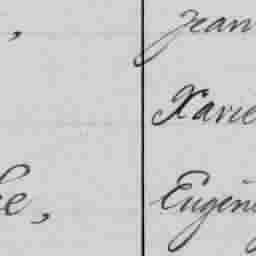 , Jean
Xavie
he, Eugéni